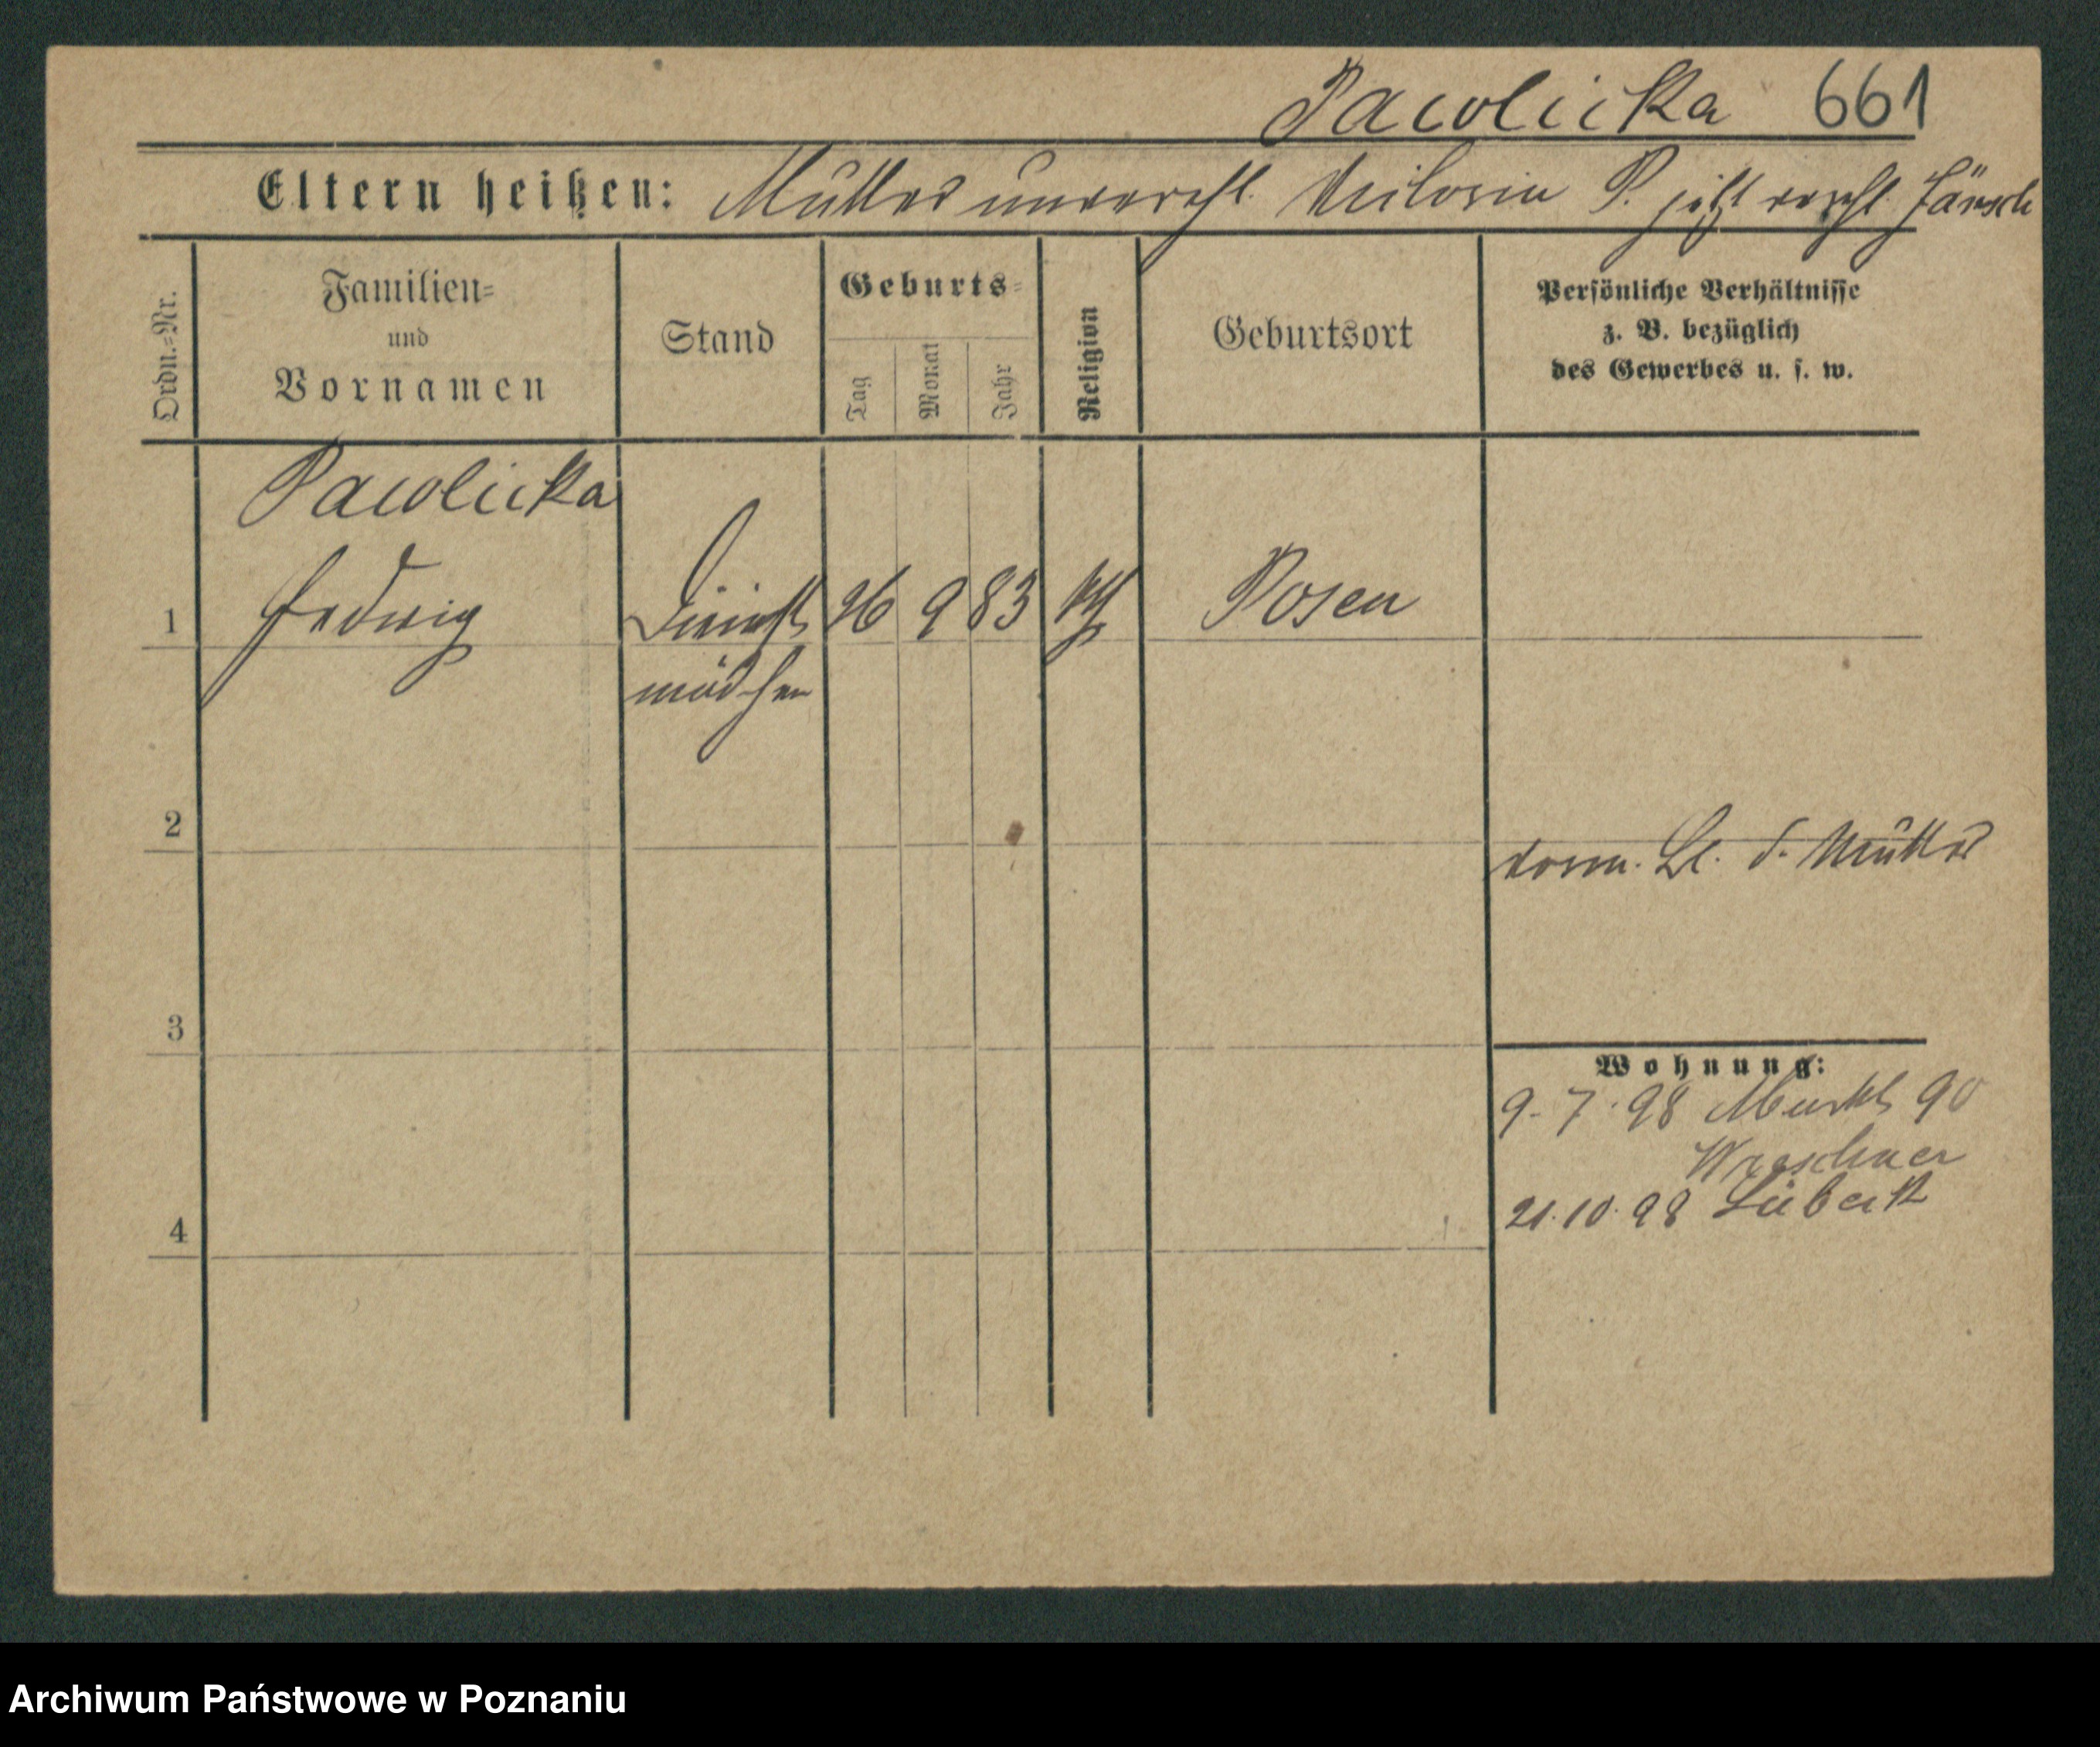 Pawlicka 661
Eltern heißen: Mutter unverehl. P. jetzt verehl. Jänsch
Ordn.-Nr.
Familien-
und
Vornamen
Stand
Geburts-
Tag
Monat
Jahr
Religion
Geburtsort
Persönliche Verhältnisse
z. B. bezüglich
des Gewerbes u. s. w.
Pawlicka
1 Hedwig Dienst 26 9 83 kth Posen
mädchen
2
d. Mutter
3
Wohnung:
9.7.98 Markt 90
Wreschner
4
21.10.98
Archiwum Państwowe w Poznaniu